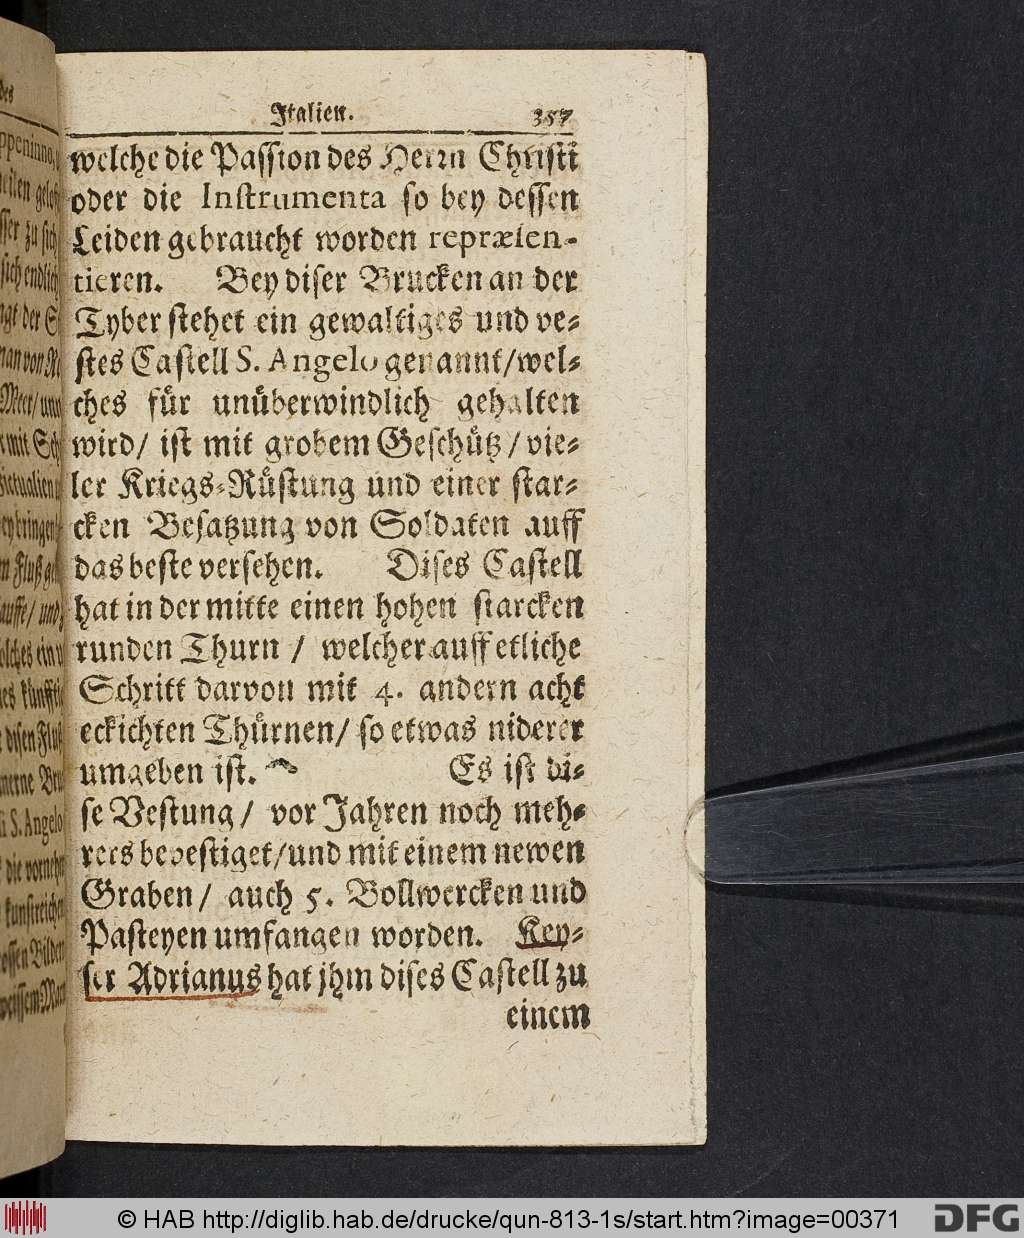 Italien. 357
welche die Passion des Herrn Christi
oder die Instrumenta so bey dessen
Leiden gebraucht worden repræsen-
tieren. Bey diser Brucken an der
Tyber stehet ein gewaltiges und ve-
stes Castell S. Angelo genannt/wel-
ches für unüberwindlich gehalten
wird/ ist mit grobem Geschütz/ vie-
ler Kriegs-Rüstung und einer star-
cken Besatzung von Soldaten auff
das beste versehen. Dises Castell
hat in der mitte einen hohen starcken
runden Thurn / welcher auff etliche
Schritt darvon mit 4. andern acht
eckichten Thürnen/ so etwas niderer
umgeben ist. Es ist di-
se Vestung/ vor Jahren noch meh-
rers bevestiget/und mit einem newen
Graben/ auch 5. Bollwercken und
Pasteyen umfangen worden. Key-
ser Adrianus hat jhm dises Castell zu
einem
des
ppeninno,
sich endlich
Meer/ und
S. Angelo
die vornehm
kunstreichen
© HAB http://diglib.hab.de/drucke/qun-813-1s/start.htm?image=00371
DFG